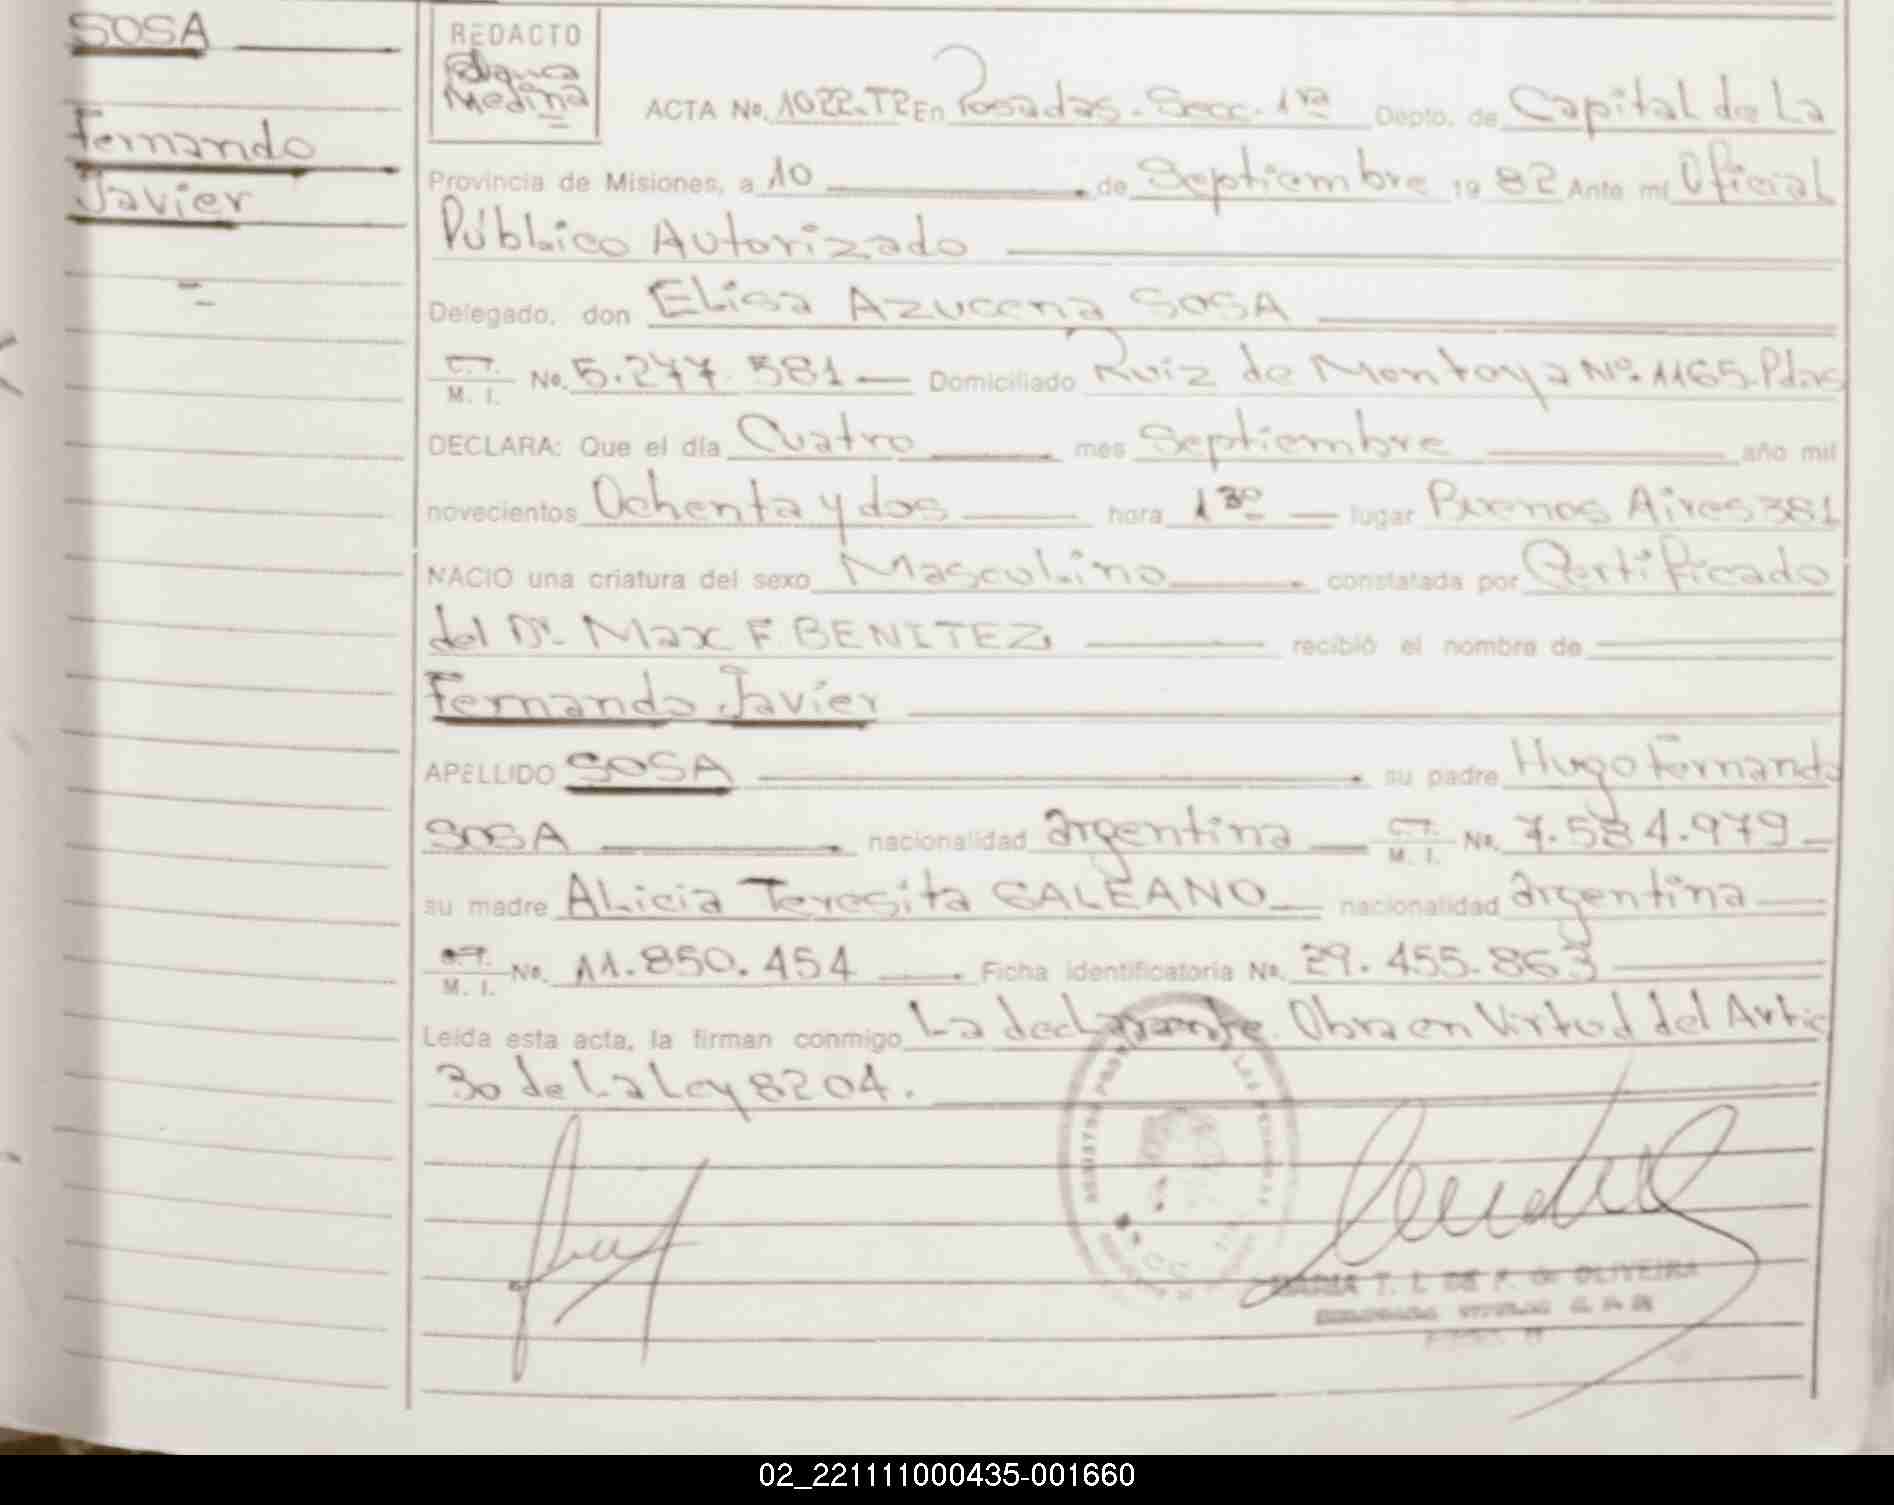 SOSA
Fernando
Javier
REDACTO
Medina
ACTA No. 1022. T2 En Posadas. Secc. 1ra Depto. de Capital de La
Provincia de Misiones, a 10 de Septiembre 19 82 Ante mí Oficial
Público Autorizado
Delegado, don Elisa Azucena SOSA
C.I.
M. I. No. 5.277.581 Domiciliado Ruiz de Montoya Nº. 1165. Pdas
DECLARA: Que el día Cuatro mes Septiembre año mil
novecientos Ochenta y dos hora 13º lugar Buenos Aires 381
NACIO una criatura del sexo Masculino constatada por Certificado
del Dr. Max F. BENITEZ recibió el nombre de
Fernando Javier
APELLIDO SOSA su padre Hugo Fernando
SOSA nacionalidad argentina C.I.
M. I. No. 7.584.979
su madre Alicia Teresita GALEANO nacionalidad argentina
C.I.
M. I. No. 11.850.454 Ficha identificatoria No. 29.455.863
Leída esta acta, la firman conmigo La declarante. Obra en Virtud del Artic
30 de La Ley 8204.
MARIA T. L. DE F. de OLIVEIRA
02_221111000435-001660